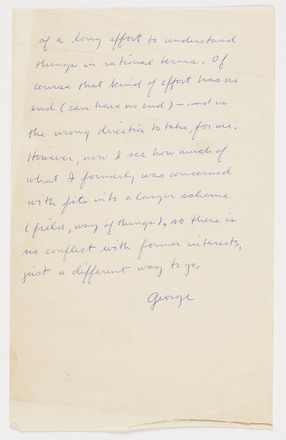 of a long effort to understand
things in rational terms. Of
course that kind of effort has no
end (can have no end) — and is
the wrong direction to take, for me.
However, now I see how much of
what I formerly was concerned
with fits into a larger scheme
(field, way of things), so there is
no conflict with former interests,
just a different way to go.
George